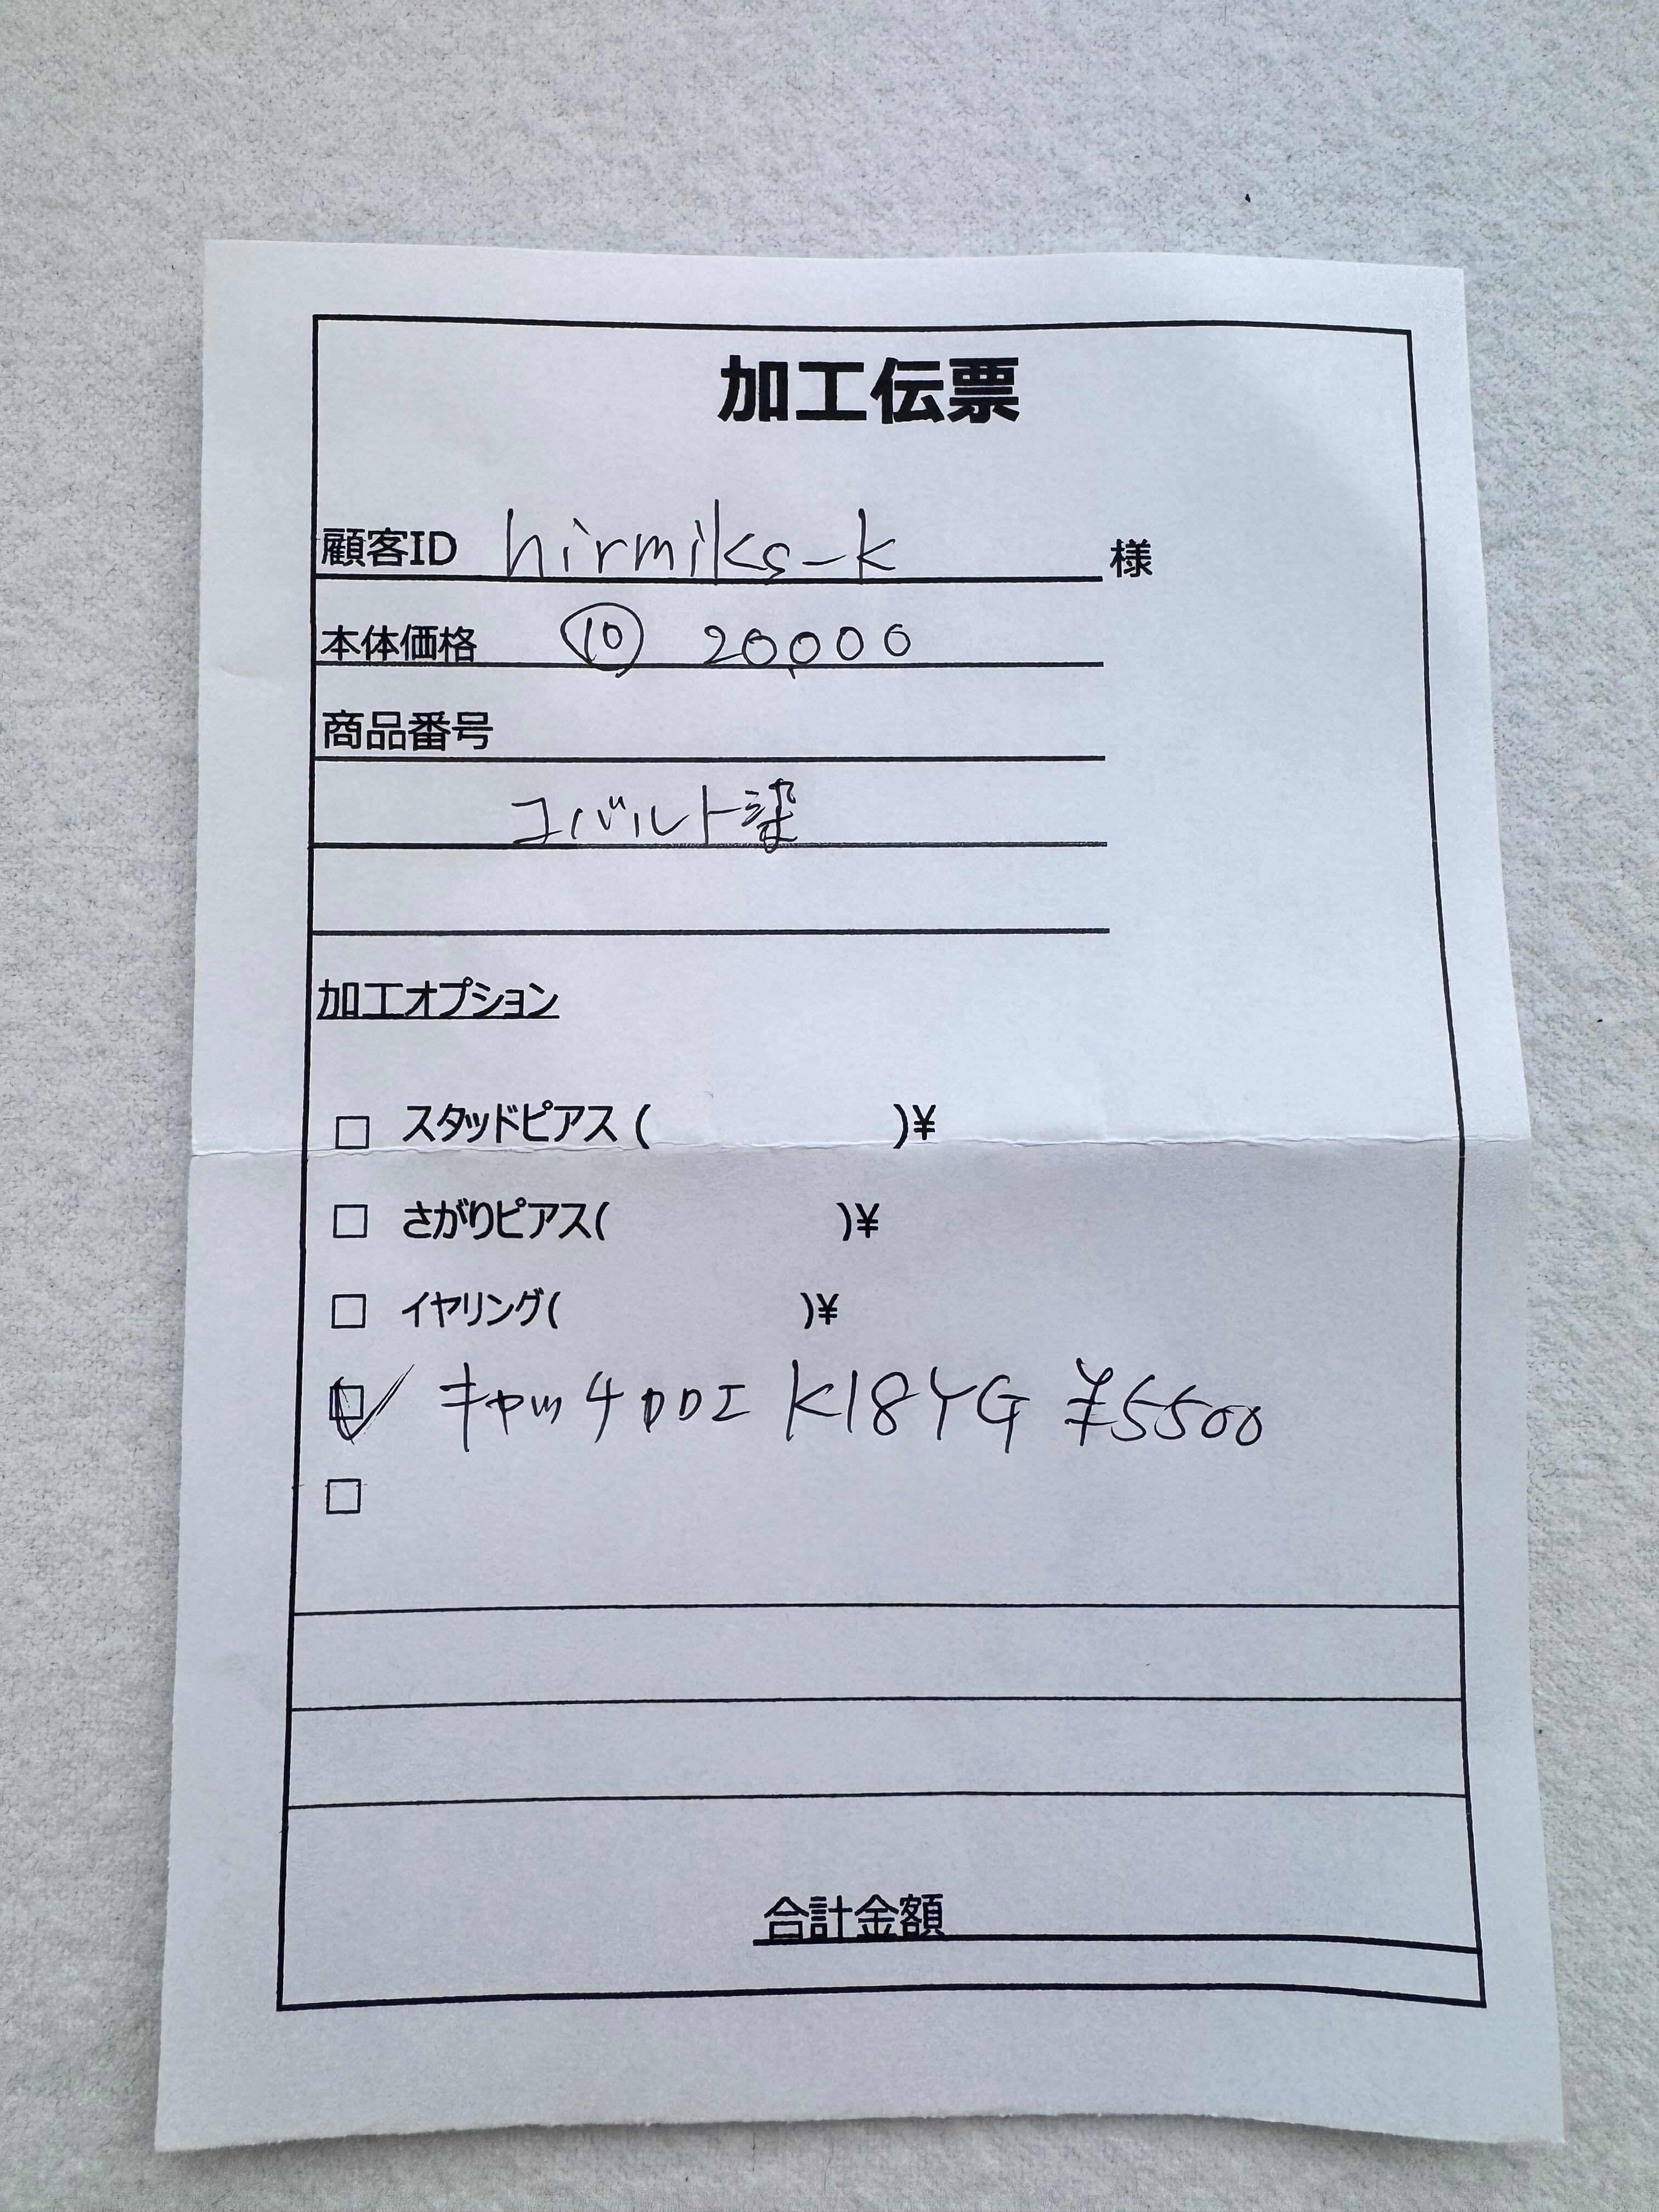 加工伝票
顧客ID hirmiks-k 様
本体価格 ⑩ 20,000
商品番号
コバルト染
加工オプション
□ スタッドピアス ( )¥
□ さがりピアス( )¥
□ イヤリング( )¥
☑ キャッチ加工 K18YG ¥5500
□
合計金額